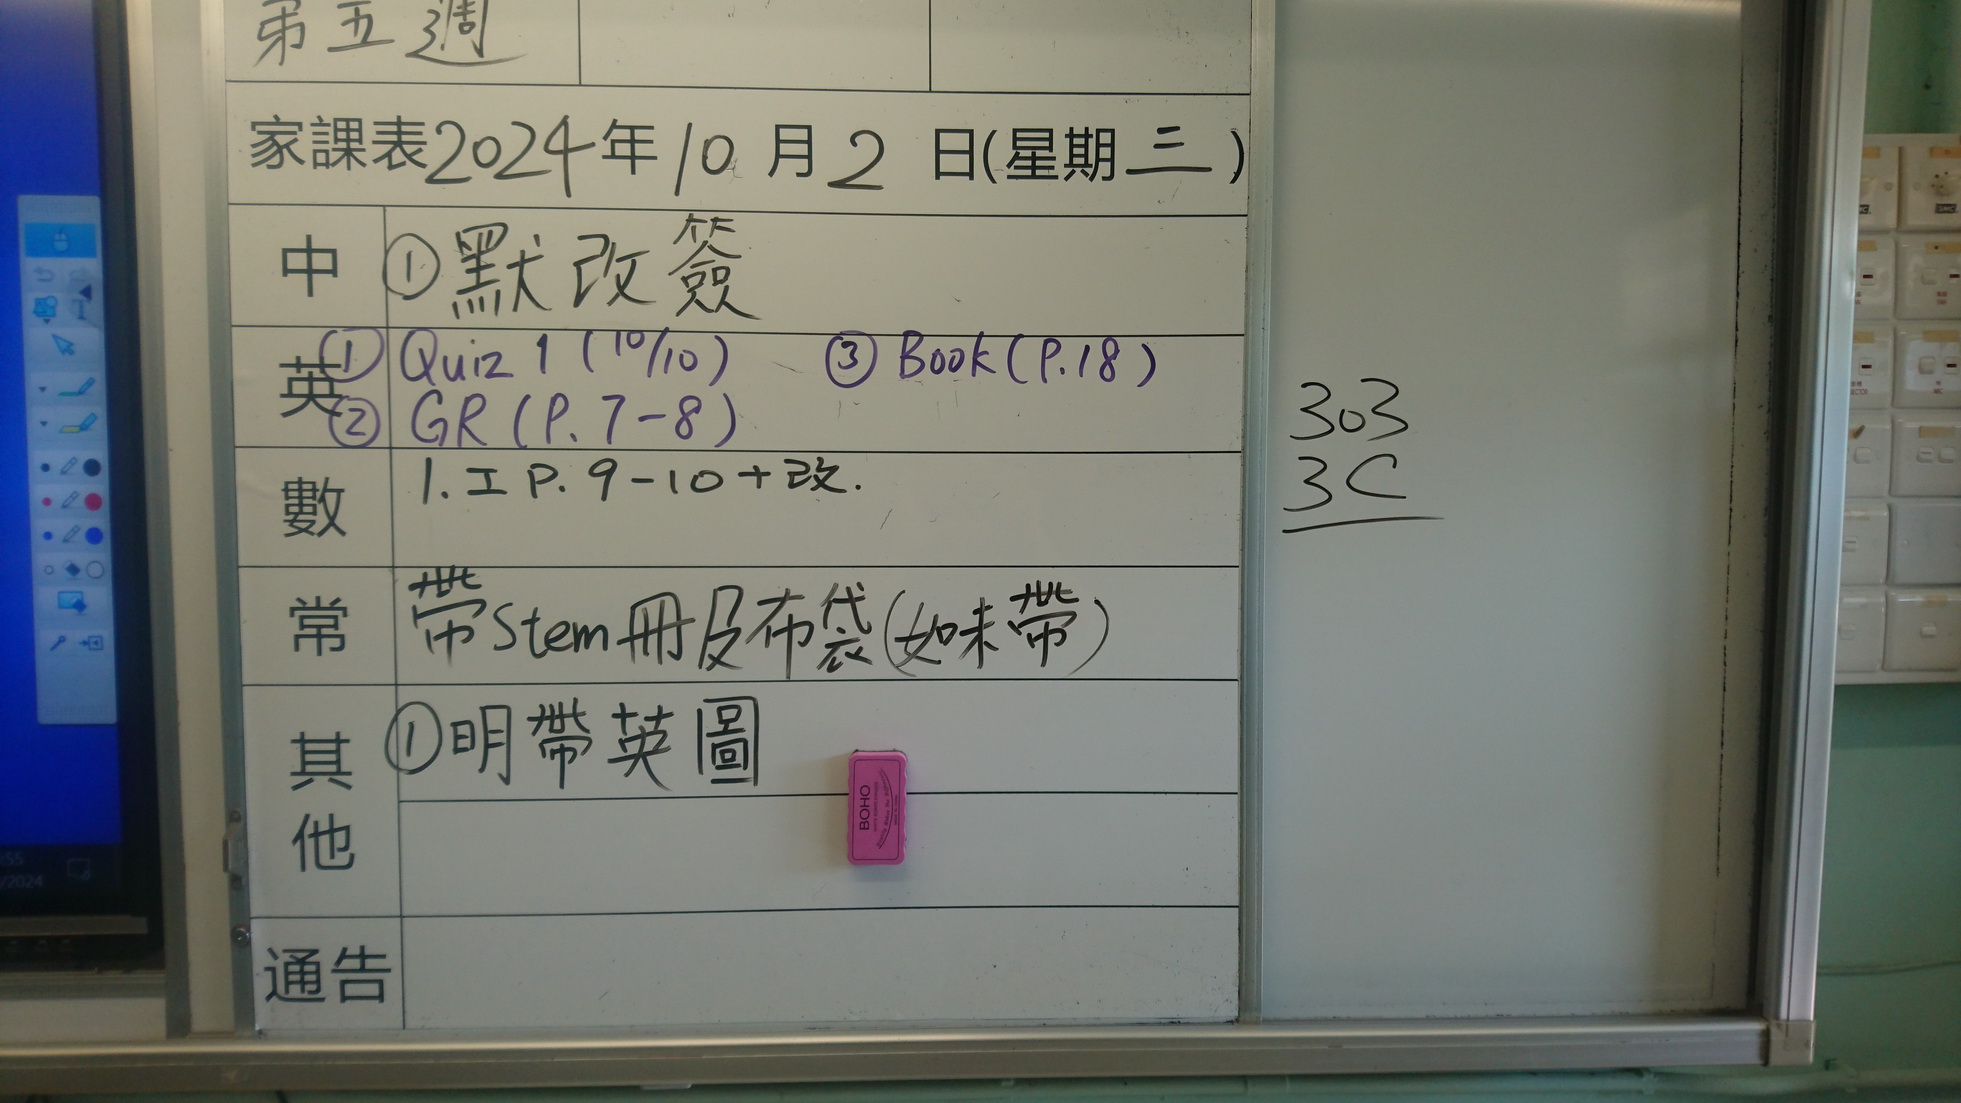 第五週
家課表2024年10月2日(星期三)
中
①默改簽
英
① Quiz 1 (10/10) ③ Book (P.18)
② GR (P. 7-8)
數
1. 工 P. 9-10+改.
常
帶Stem冊及布袋(如未帶)
其他
①明帶英圖
BOHO
通告
303
3C
:55
/2024